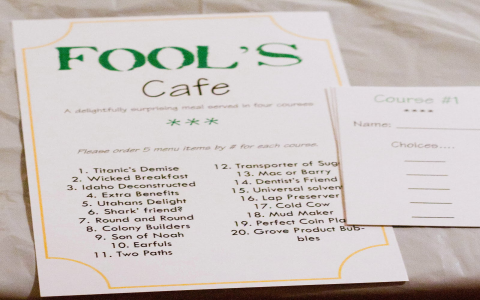 FOOL'S
Cafe
A delightfully surprising meal served in four courses
***
Please order 5 menu items by # for each course.
1. Titanic's Demise
2. Wicked Breakfast
3. Idaho Deconstructed
4. Extra Benefits
5. Utahans Delight
6. Shark' friend?
7. Round and Round
8. Colony Builders
9. Son of Noah
10. Earfuls
11. Two Paths
12. Transporter of
13. Mac or Barry
14. Dentist's Friend
15. Universal solven
16. Lap Preserver
17. Cold Cow
18. Mud Maker
19. Perfect Coin Pla
20. Grove Product Bub-
bles
Course #1
****
Name:
Choices....